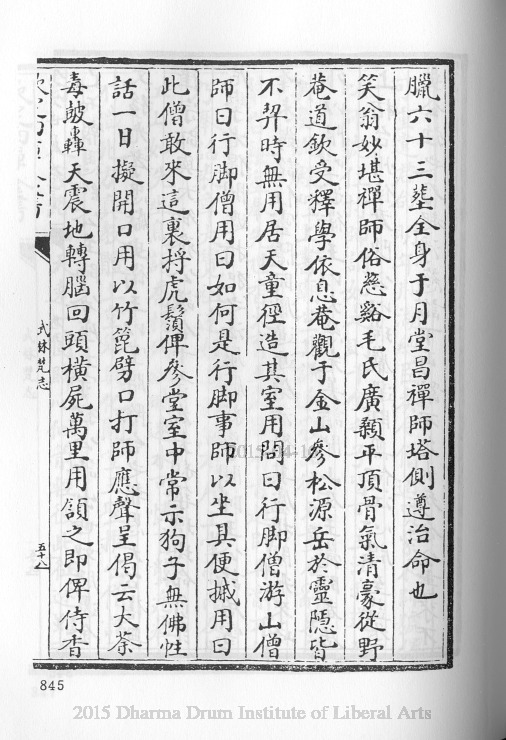 臘六十三塟全身于月堂昌禪師塔側遵治命也
笑翁妙堪禪師俗慈谿毛氏廣顙平頂骨氣清豪從野
菴道欽受釋學依息菴觀于金山參松源岳於靈隱皆
不契時無用居天童徑造其室用問曰行脚僧游山僧
師曰行脚僧用曰如何是行脚事師以坐具便摵用曰
此僧敢來這裏捋虎鬚俾參堂室中常示狗子無佛性
話一日擬開口用以竹篦劈口打師應聲呈偈云大茶
毒皷轟天震地轉腦回頭橫屍萬里用頷之即俾侍香
武林梵志
五十八
845
2015 Dharma Drum Institute of Liberal Arts